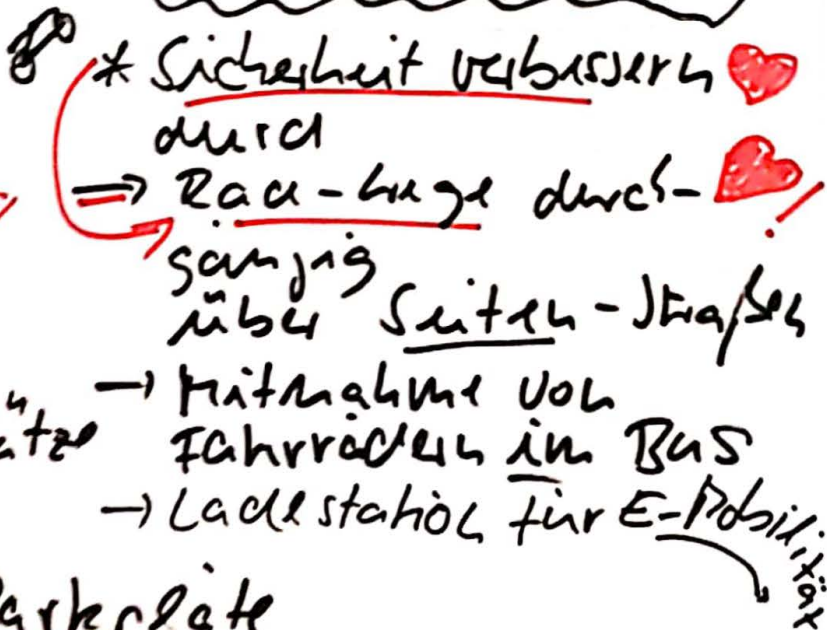 * Sicherheit verbessern
durch
=> Rad-Wege durch-
gängig
über Seiten-Straßen
→ Mitnahme von
Fahrrädern im Bus
→ Ladestation für E-Mobilität